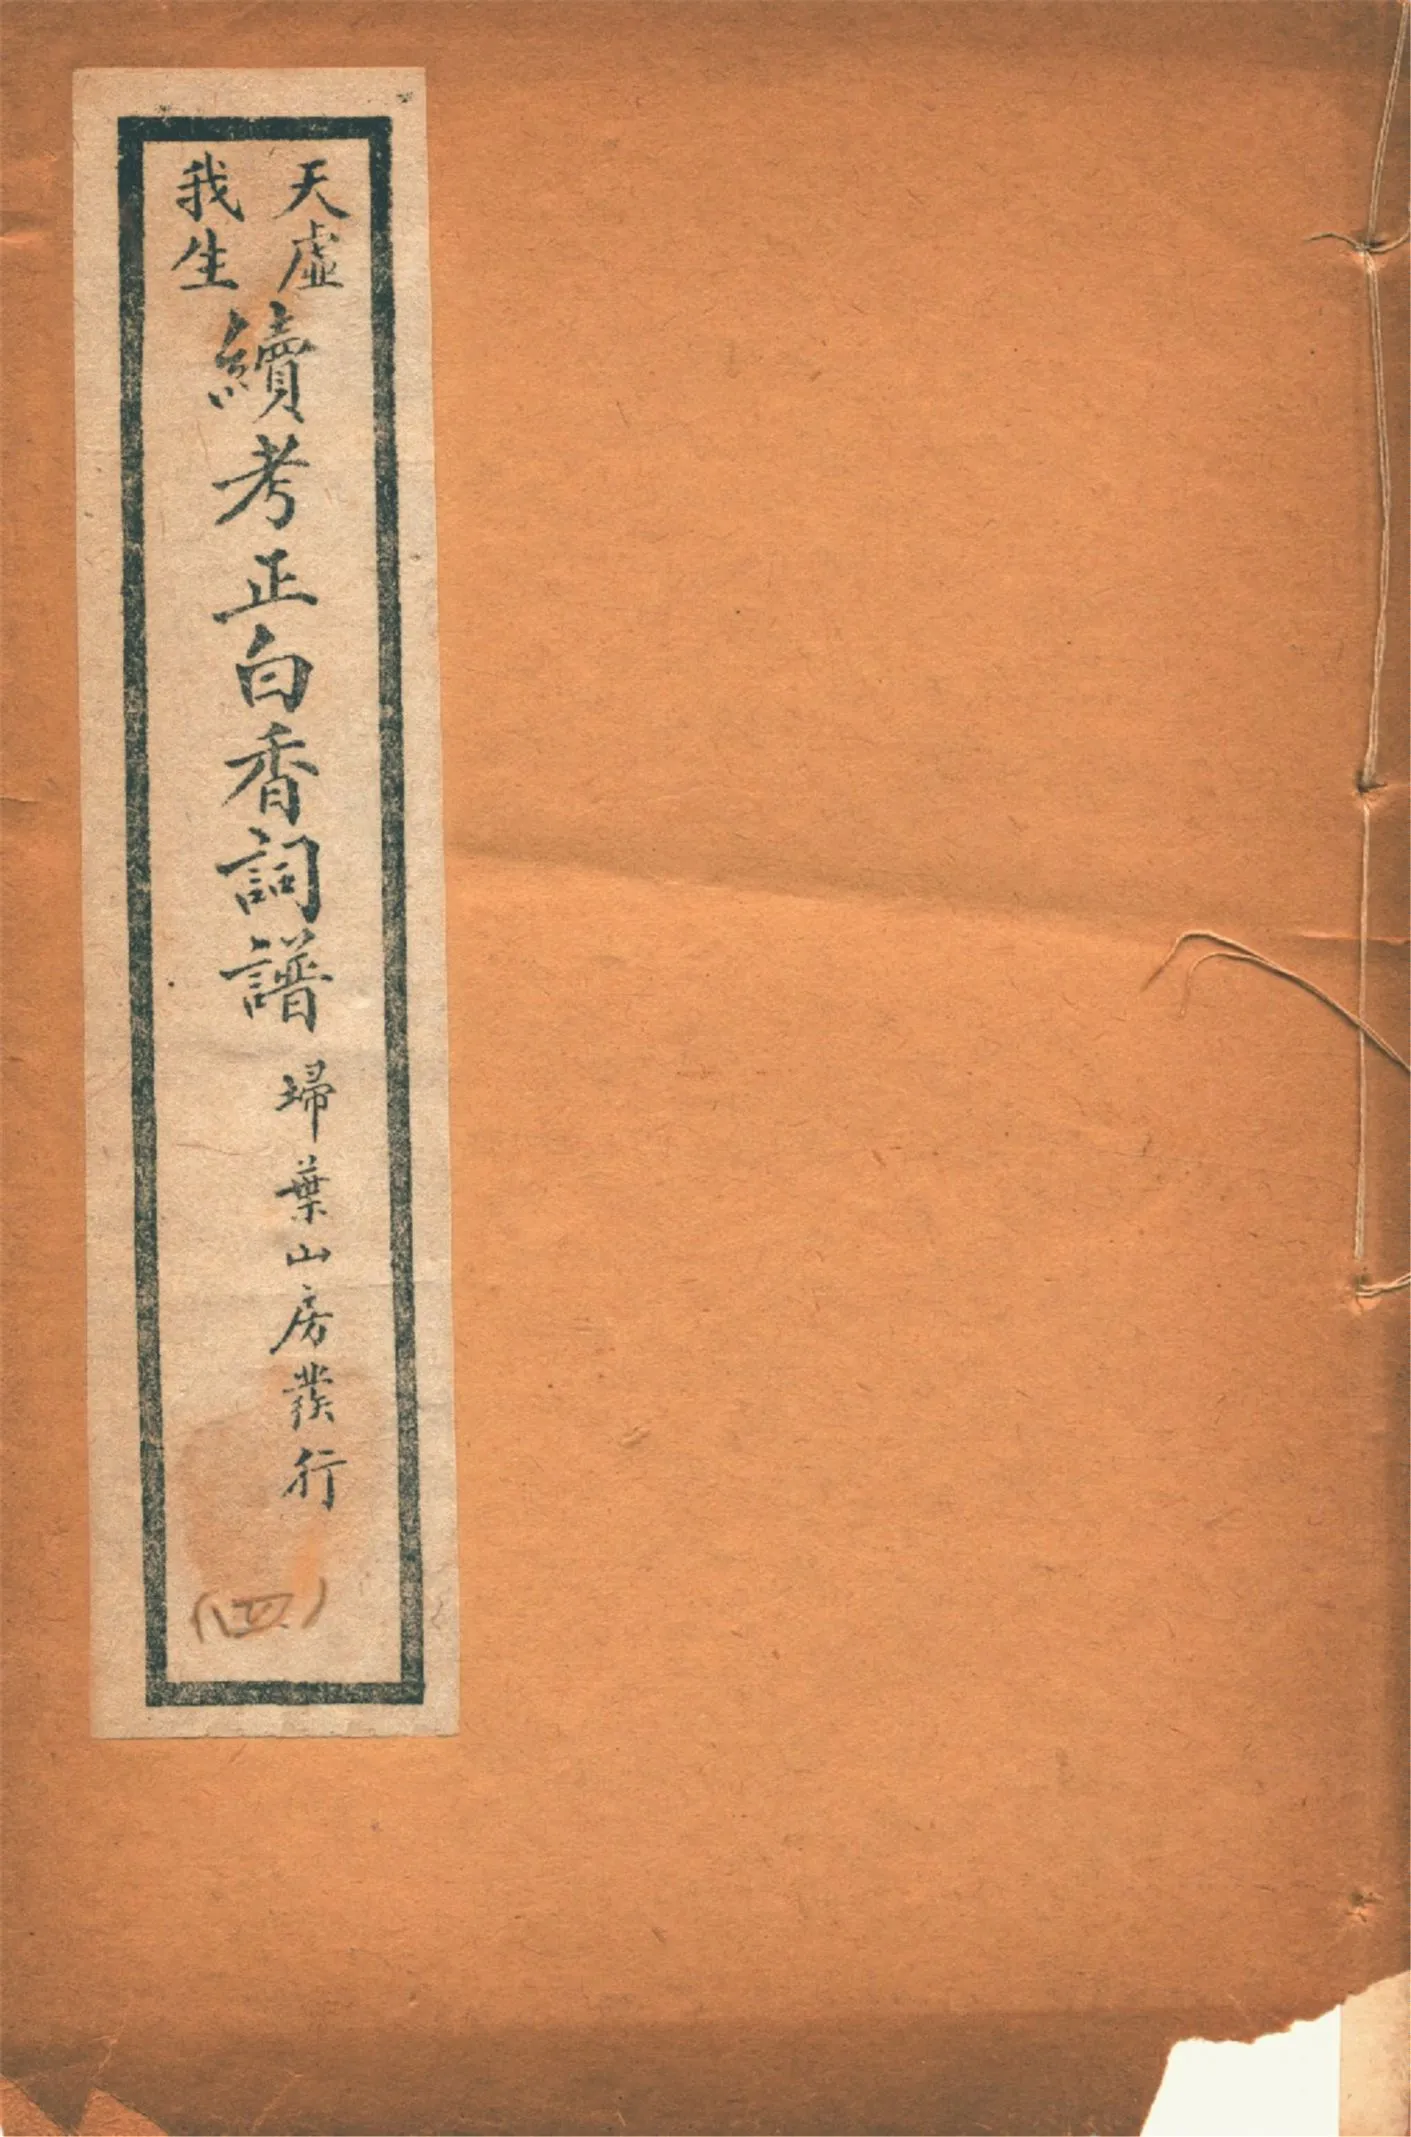 天虛
我生
續考正白香詞譜
埽葉山房發行
(四)